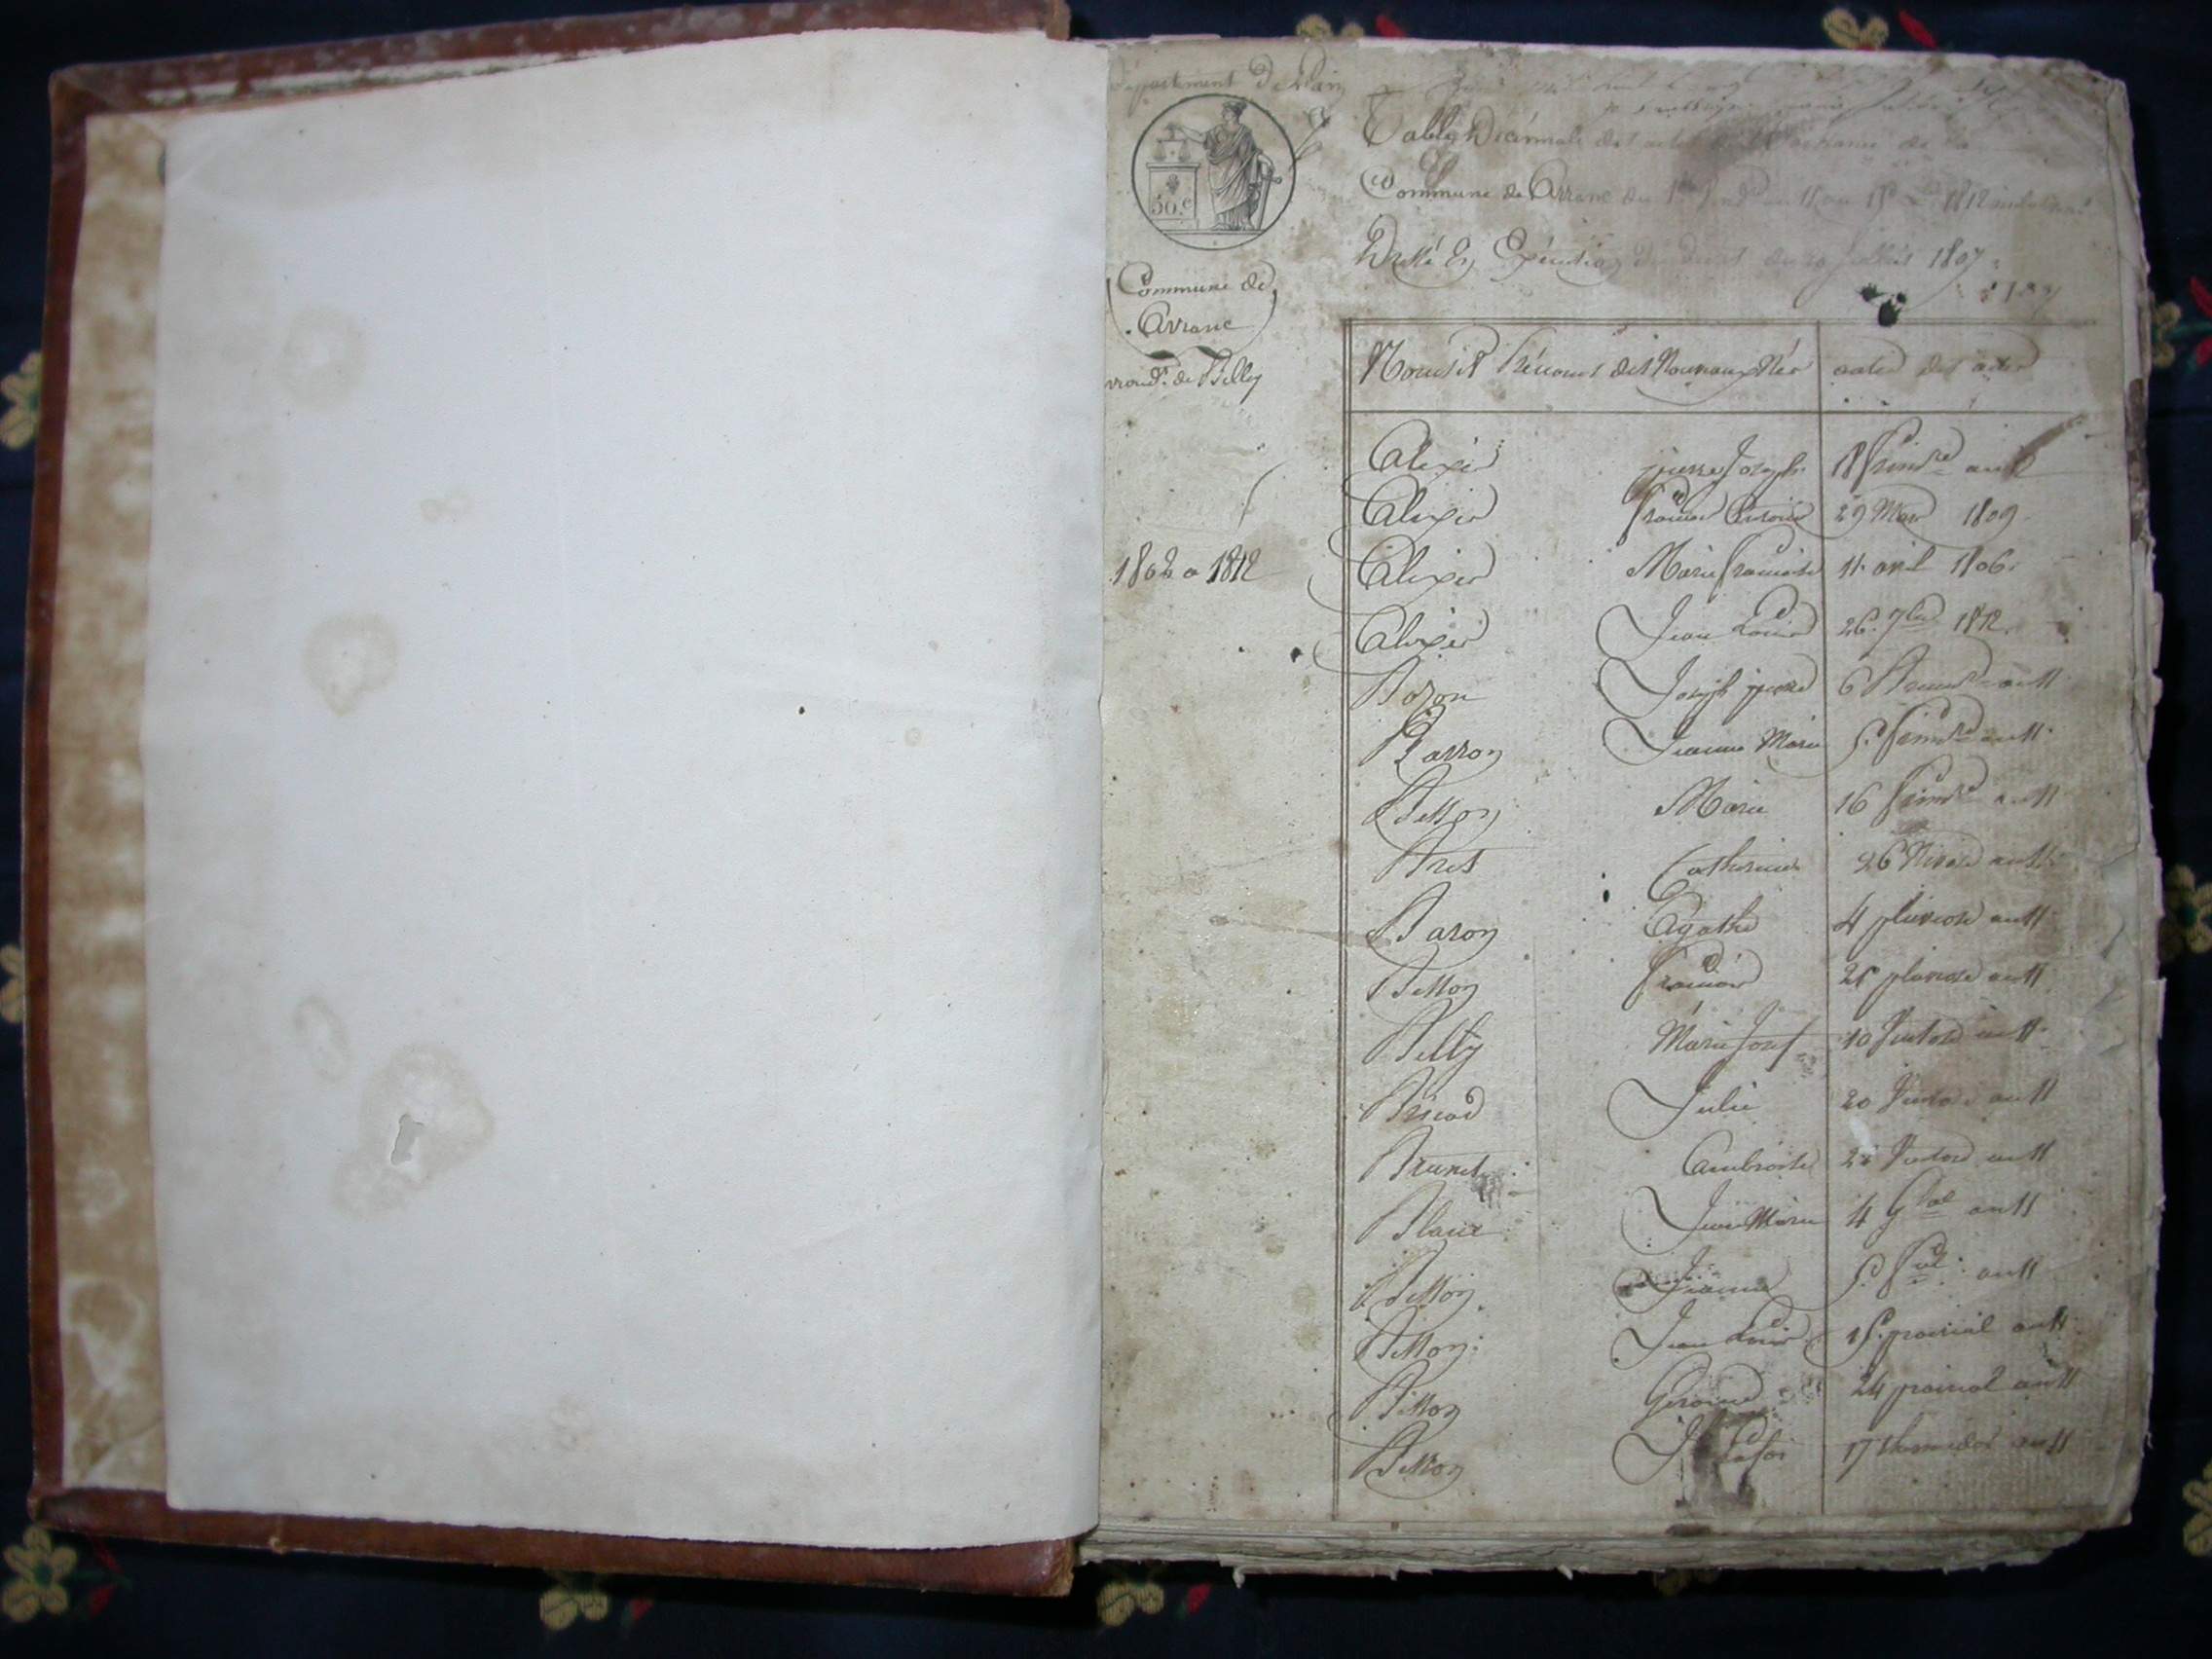 Département De L'ain
Table Décennale des actes de Naissance de la
Commune de Arranc du 1er Vendre an 11 au 1812
Dressé En Exécution du décret du 20 Juillet 1807
50.c
Commune de
Arranc
arrondt. de Belley
1802 a 1812
Noms et Prénoms des Nouveaux Nés dates des actes
Alexis pierre Joseph 18 frimre an
Alexis 29 Mars 1809
Alexis Marie francoise 11 avril 1806
Alexis Jean Louis 26. 7bre 1812
Bozon Joseph pierre 6 Brumre an 11
Barron Jeanne Marie 5. frimre an 11
Billion Marie 16 frimre an 11
Bret Catherine 26 Nivose an 11
Baron Agathe 4 pluviose an 11
Billion francois 25 pluviose an 11
Billy Marie Josef 10 Ventose an 11
Bricod Julie 20 Ventose an 11
Brunet Ambroise Ventose an 11
Blanc Jean Marie 4 Gal an 11
Billion Jeanne 5. fal an 11
Billion Jean Louis 15. prairial an 11
Billion Gerome 24 prairial an 11
Billion 17 thermidor an 11